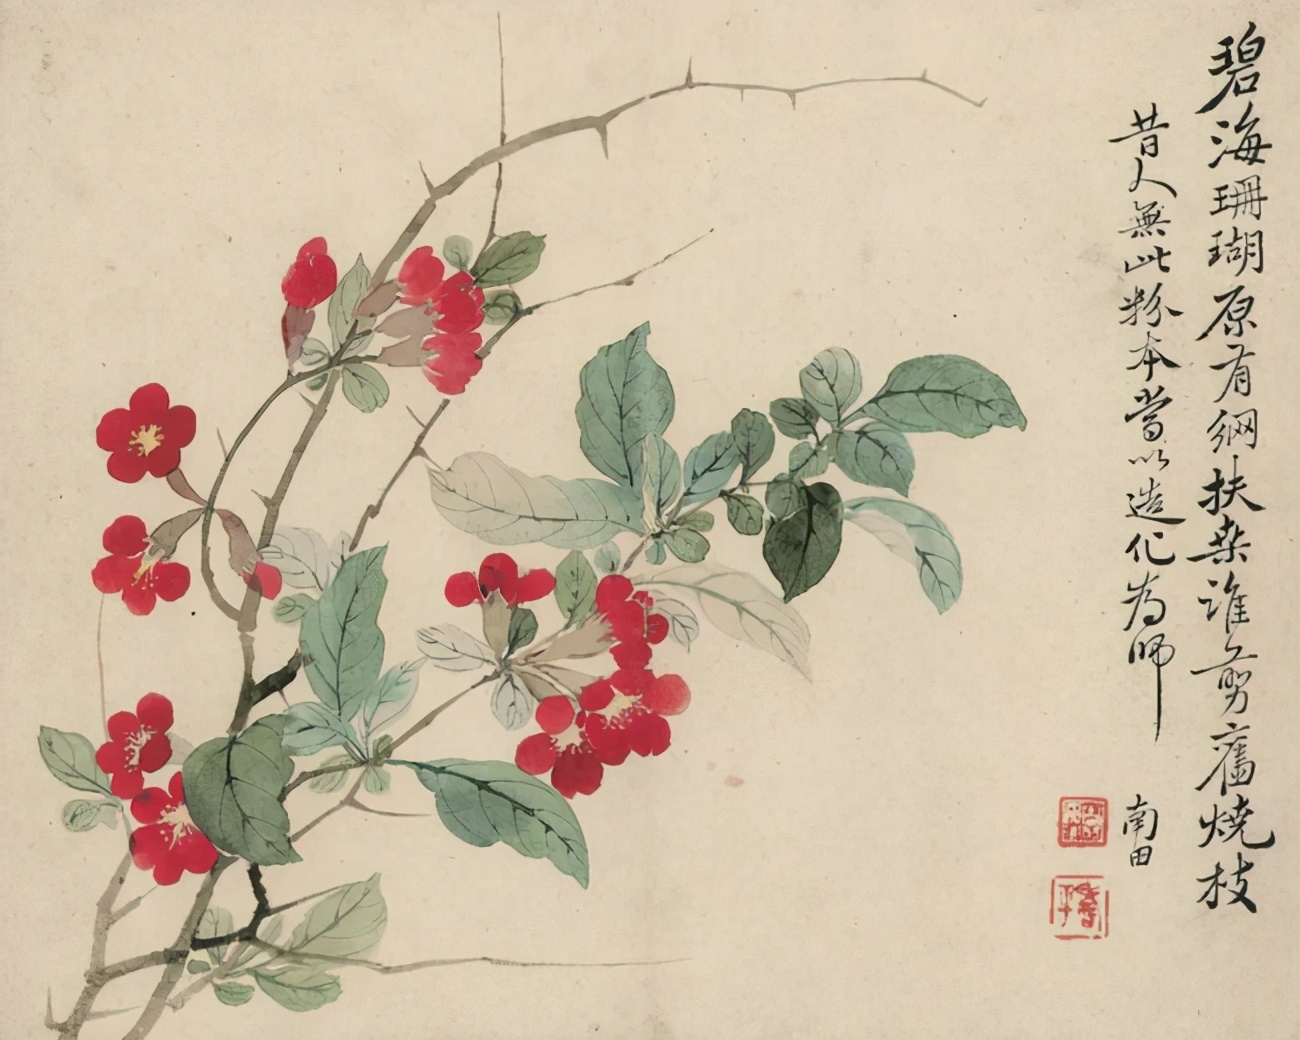 碧海珊瑚原有網扶桑誰剪舊燒枝
昔人無此粉本當以造化為師
南田